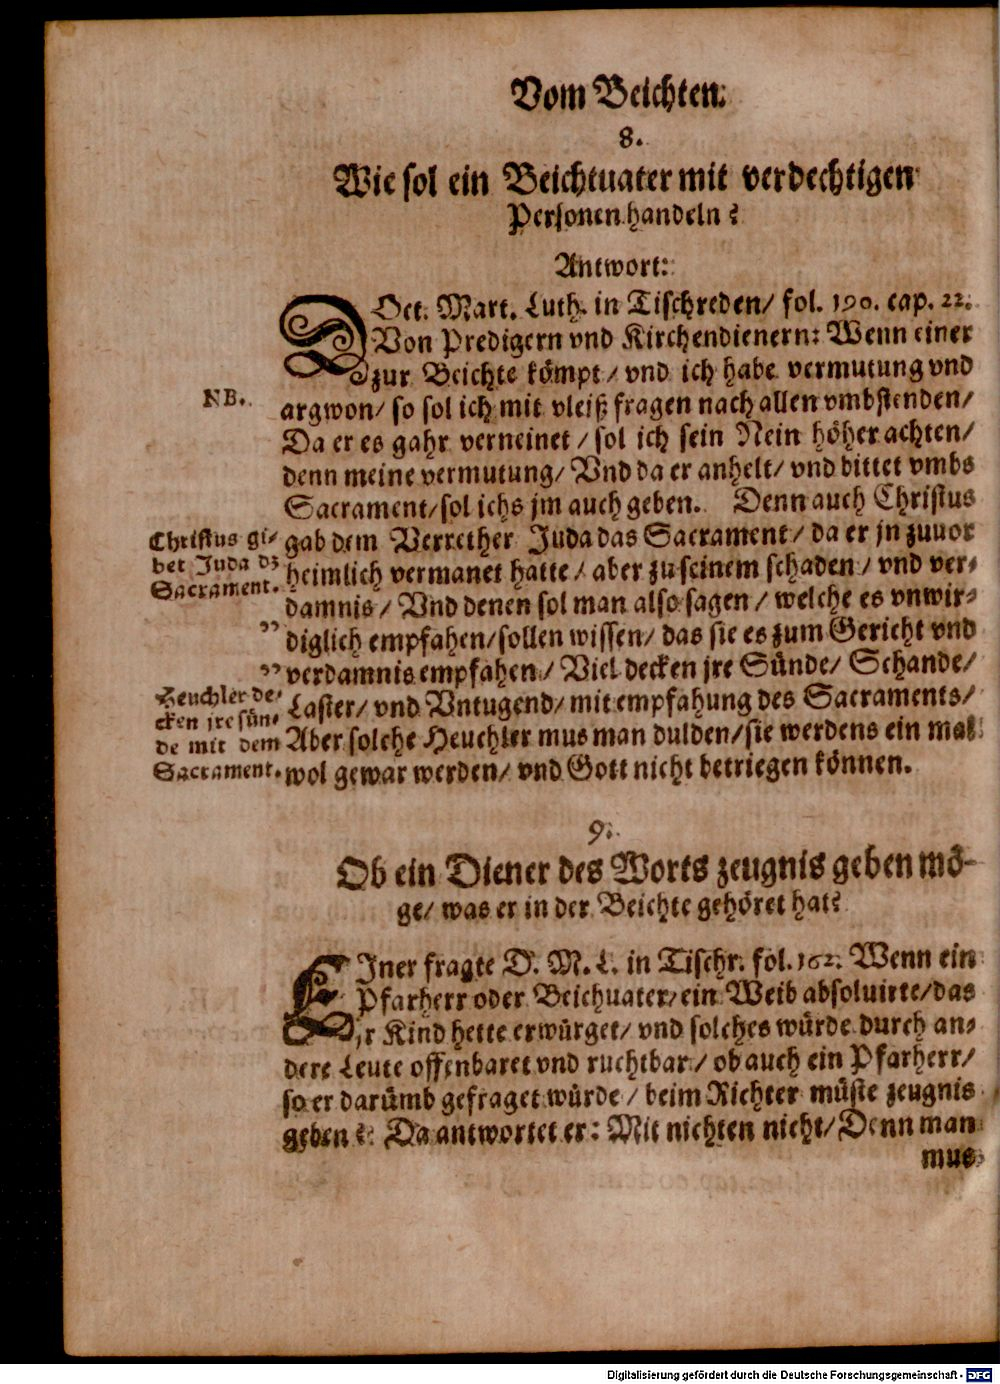 Vom Beichten.
8.
Wie sol ein Beichtuater mit verdechtigen
Personen handeln?
Antwort:
DOct. Mart. Luth. in Tischreden/ fol. 190. cap. 22.
Von Predigern vnd Kirchendienern: Wenn einer
zur Beichte kömpt/ vnd ich habe vermutung vnd
NB.
argwon/ so sol ich mit vleiß fragen nach allen vmbstenden/
Da er es gahr verneinet/ sol ich sein Nein höher achten/
denn meine vermutung/ Vnd da er anhelt/ vnd bittet vmbs
Sacrament/ sol ichs jm auch geben. Denn auch Christus
Christus gi-
bet Juda dz
Sacrament.
gab dem Verrether Juda das Sacrament/ da er jn zuuor
heimlich vermanet hatte/ aber zu seinem schaden/ vnd ver-
damnis/ Vnd denen sol man also sagen/ welche es vnwir-
" diglich empfahen/ sollen wissen/ das sie es zum Gericht vnd
" verdamnis empfahen/ Viel decken jre Sünde/ Schande/
Heuchler de-
cken jre sün-
de mit dem
Sacrament.
Laster/ vnd Vntugend/ mit empfahung des Sacraments/
Aber solche Heuchler mus man dulden/ sie werdens ein mal
wol gewar werden/ vnd Gott nicht betriegen können.
9.
Ob ein Diener des Worts zeugnis geben mö-
ge/ was er in der Beichte gehöret hat?
EJner fragte D. M. L. in Tischr. fol. 162. Wenn ein
Pfarherr oder Beichuater/ ein Weib absoluirte/ das
jr Kind hette erwürget/ vnd solches würde durch an-
dere Leute offenbaret vnd ruchtbar/ ob auch ein Pfarherr/
so er darümb gefraget würde/ beim Richter müste zeugnis
geben? Da antwortet er: Mit nichten nicht/ Denn man
mus
Digitalisierung gefördert durch die Deutsche Forschungsgemeinschaft - DFG